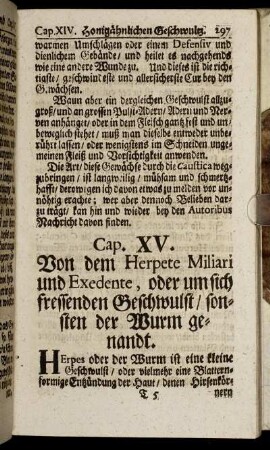 Cap. XIV. Honigähnlichen Geschwulst. 297
warmen Umschlägen oder einem Defensiv und
dienlichem Gebände/ und heilet es nachgehends
wie eine andere Wunde zu. Und dieses ist die rich-
tigste/ geschwindeste und allersicherste Cur bey den
Gewächsen.
Wann aber ein dergleichen Geschwulst allzu-
groß/ und an grossen Puls-Adern/ Adern und Ner-
ven anhänget/ oder in dem Fleisch gantz fest und un-
beweglich stehet/ muß man dieselbe entweder unbe-
rührt lassen/ oder wenigstens im Schneiden unge-
meinen Fleiß und Vorsichtigkeit anwenden.
Die Art/ diese Gewächse durch die Caustica weg-
zubringen/ ist langweilig/ mühsam und schmertz-
hafft/ derowegen ich davon etwas zu melden vor un-
nöthig erachte; wer aber dennoch Belieben dar-
zu trägt/ kan hin und wieder bey den Autoribus
Nachricht davon finden.
Cap. XV.
Von dem Herpete Miliari
und Exedente, oder um sich
fressenden Geschwulst/ son-
sten der Wurm ge-
nandt.
HErpes oder der Wurm ist eine kleine
Geschwulst/ oder vielmehr eine Blattern-
formige Entzündung der Haut/ denen Hirsenkör-
T 5 nern